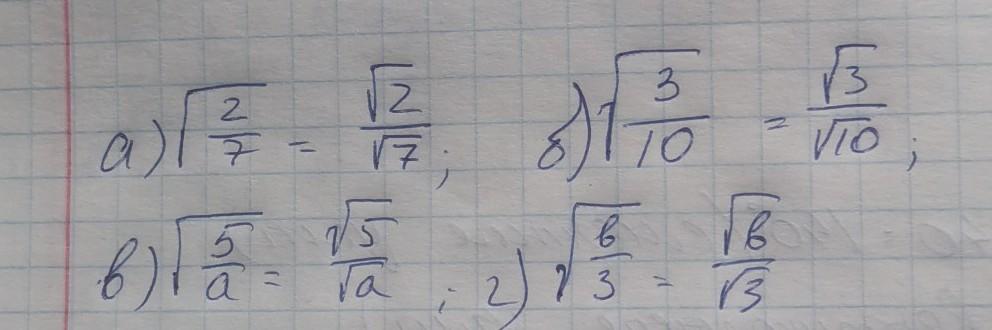 а) √(2/7) = √2/√7; б) √(3/10) = √3/√10;
в) √(5/a) = √5/√a; г) √(b/3) = √b/√3